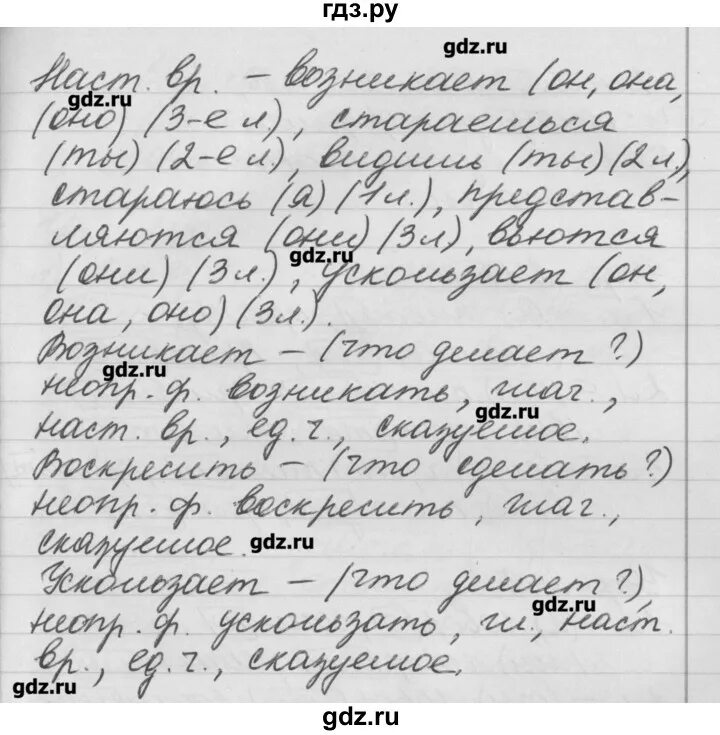 гдз.ру
gdz.ru
Наст. вр. – возникает (он, она,
gdz.ru
(оно) (3-е л.), стараешься
(ты) (2-е л.), видишь (ты) (2 л),
стараюсь (я) (1 л.), представ-
ляются (они) (3 л), вьются
gdz.ru
(они) (3 л.), ускользает (он,
она, оно) (3 л.).
Возникает – (что делает?)
gdz.ru
неопр. ф. возникать, глаг.,
gdz.ru
наст. вр., ед. ч., сказуемое.
Воскресить – (что сделать?)
неопр. ф. воскресить, глаг.,
сказуемое.
gdz.ru
Ускользает – (что делает?),
gdz.ru
неопр. ф. ускользать, гл., наст.
вр., ед. ч., сказуемое.
gdz.ru
gdz.ru